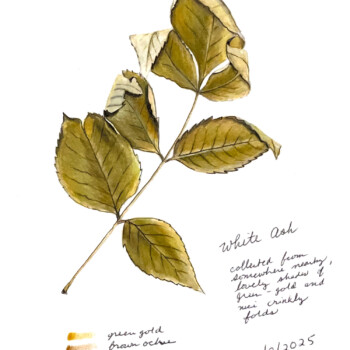 White Ash
collected from
somewhere nearby,
lovely shades of
green-gold and
nice crinkly
folds
/2025
green gold
brown ochre